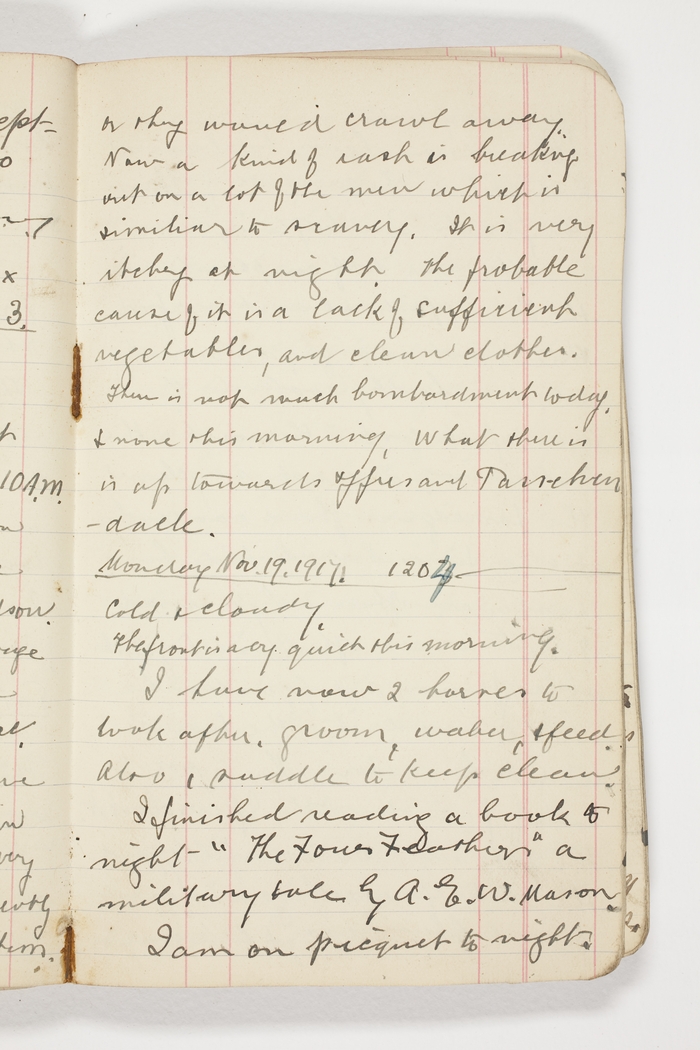 ept-
o
x
3.
10 A.M.
dson.
age
very
or they would crawl away.
Now a kind of rash is breaking
out on a lot of the men which is
similiar to scurvy. It is very
itchy at night. The probable
cause of it is a lack of sufficient
vegetables, and clean clothes.
There is not much bombardment today,
& none this morning, What there is
is up towards and Passchen
-daele.
Monday Nov. 19. 1917. 1207
Cold & cloudy,
The front is very quiet this morning.
I have now 2 horses to
look after, groom, water, & feed.
Also 1 saddle to keep clean.
I finished reading a book to
night - " The Four Feathers" a
military tale by A. E. W. Mason.
I am on picquet to night.